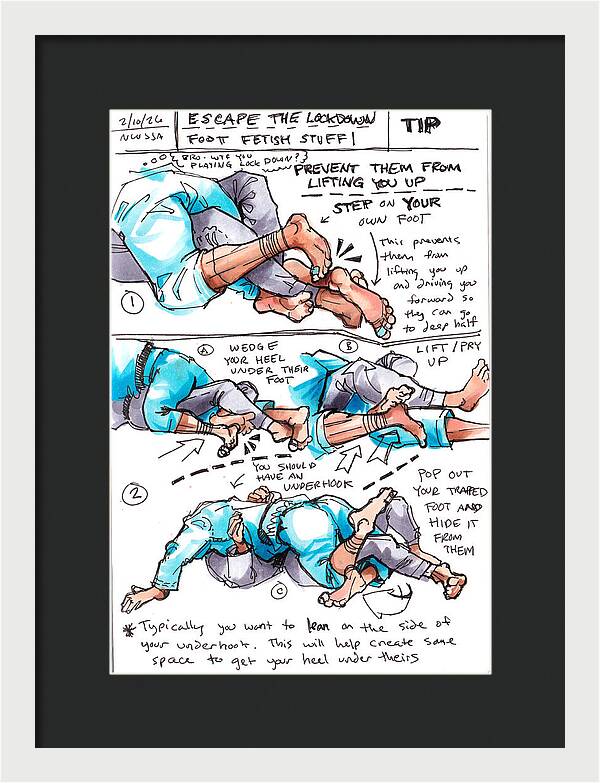 2/10/26
NWSSA
ESCAPE THE LOCKDOWN
FOOT FETISH STUFF!
TIP
BRO. WHY YOU
PLAYING LOCK DOWN?
PREVENT THEM FROM
LIFTING YOU UP
STEP ON YOUR
OWN FOOT
This prevents
them from
lifting you up
and driving you
forward so
they can go
to deep half
1
A WEDGE
YOUR HEEL
UNDER THEIR
FOOT
B
LIFT/PRY
UP
2
YOU SHOULD
HAVE AN
UNDERHOOK
POP OUT
YOUR TRAPED
FOOT AND
HIDE IT
FROM
THEM
C
* Typically you want to lean on the side of
your underhook. This will help create some
space to get your heel under theirs